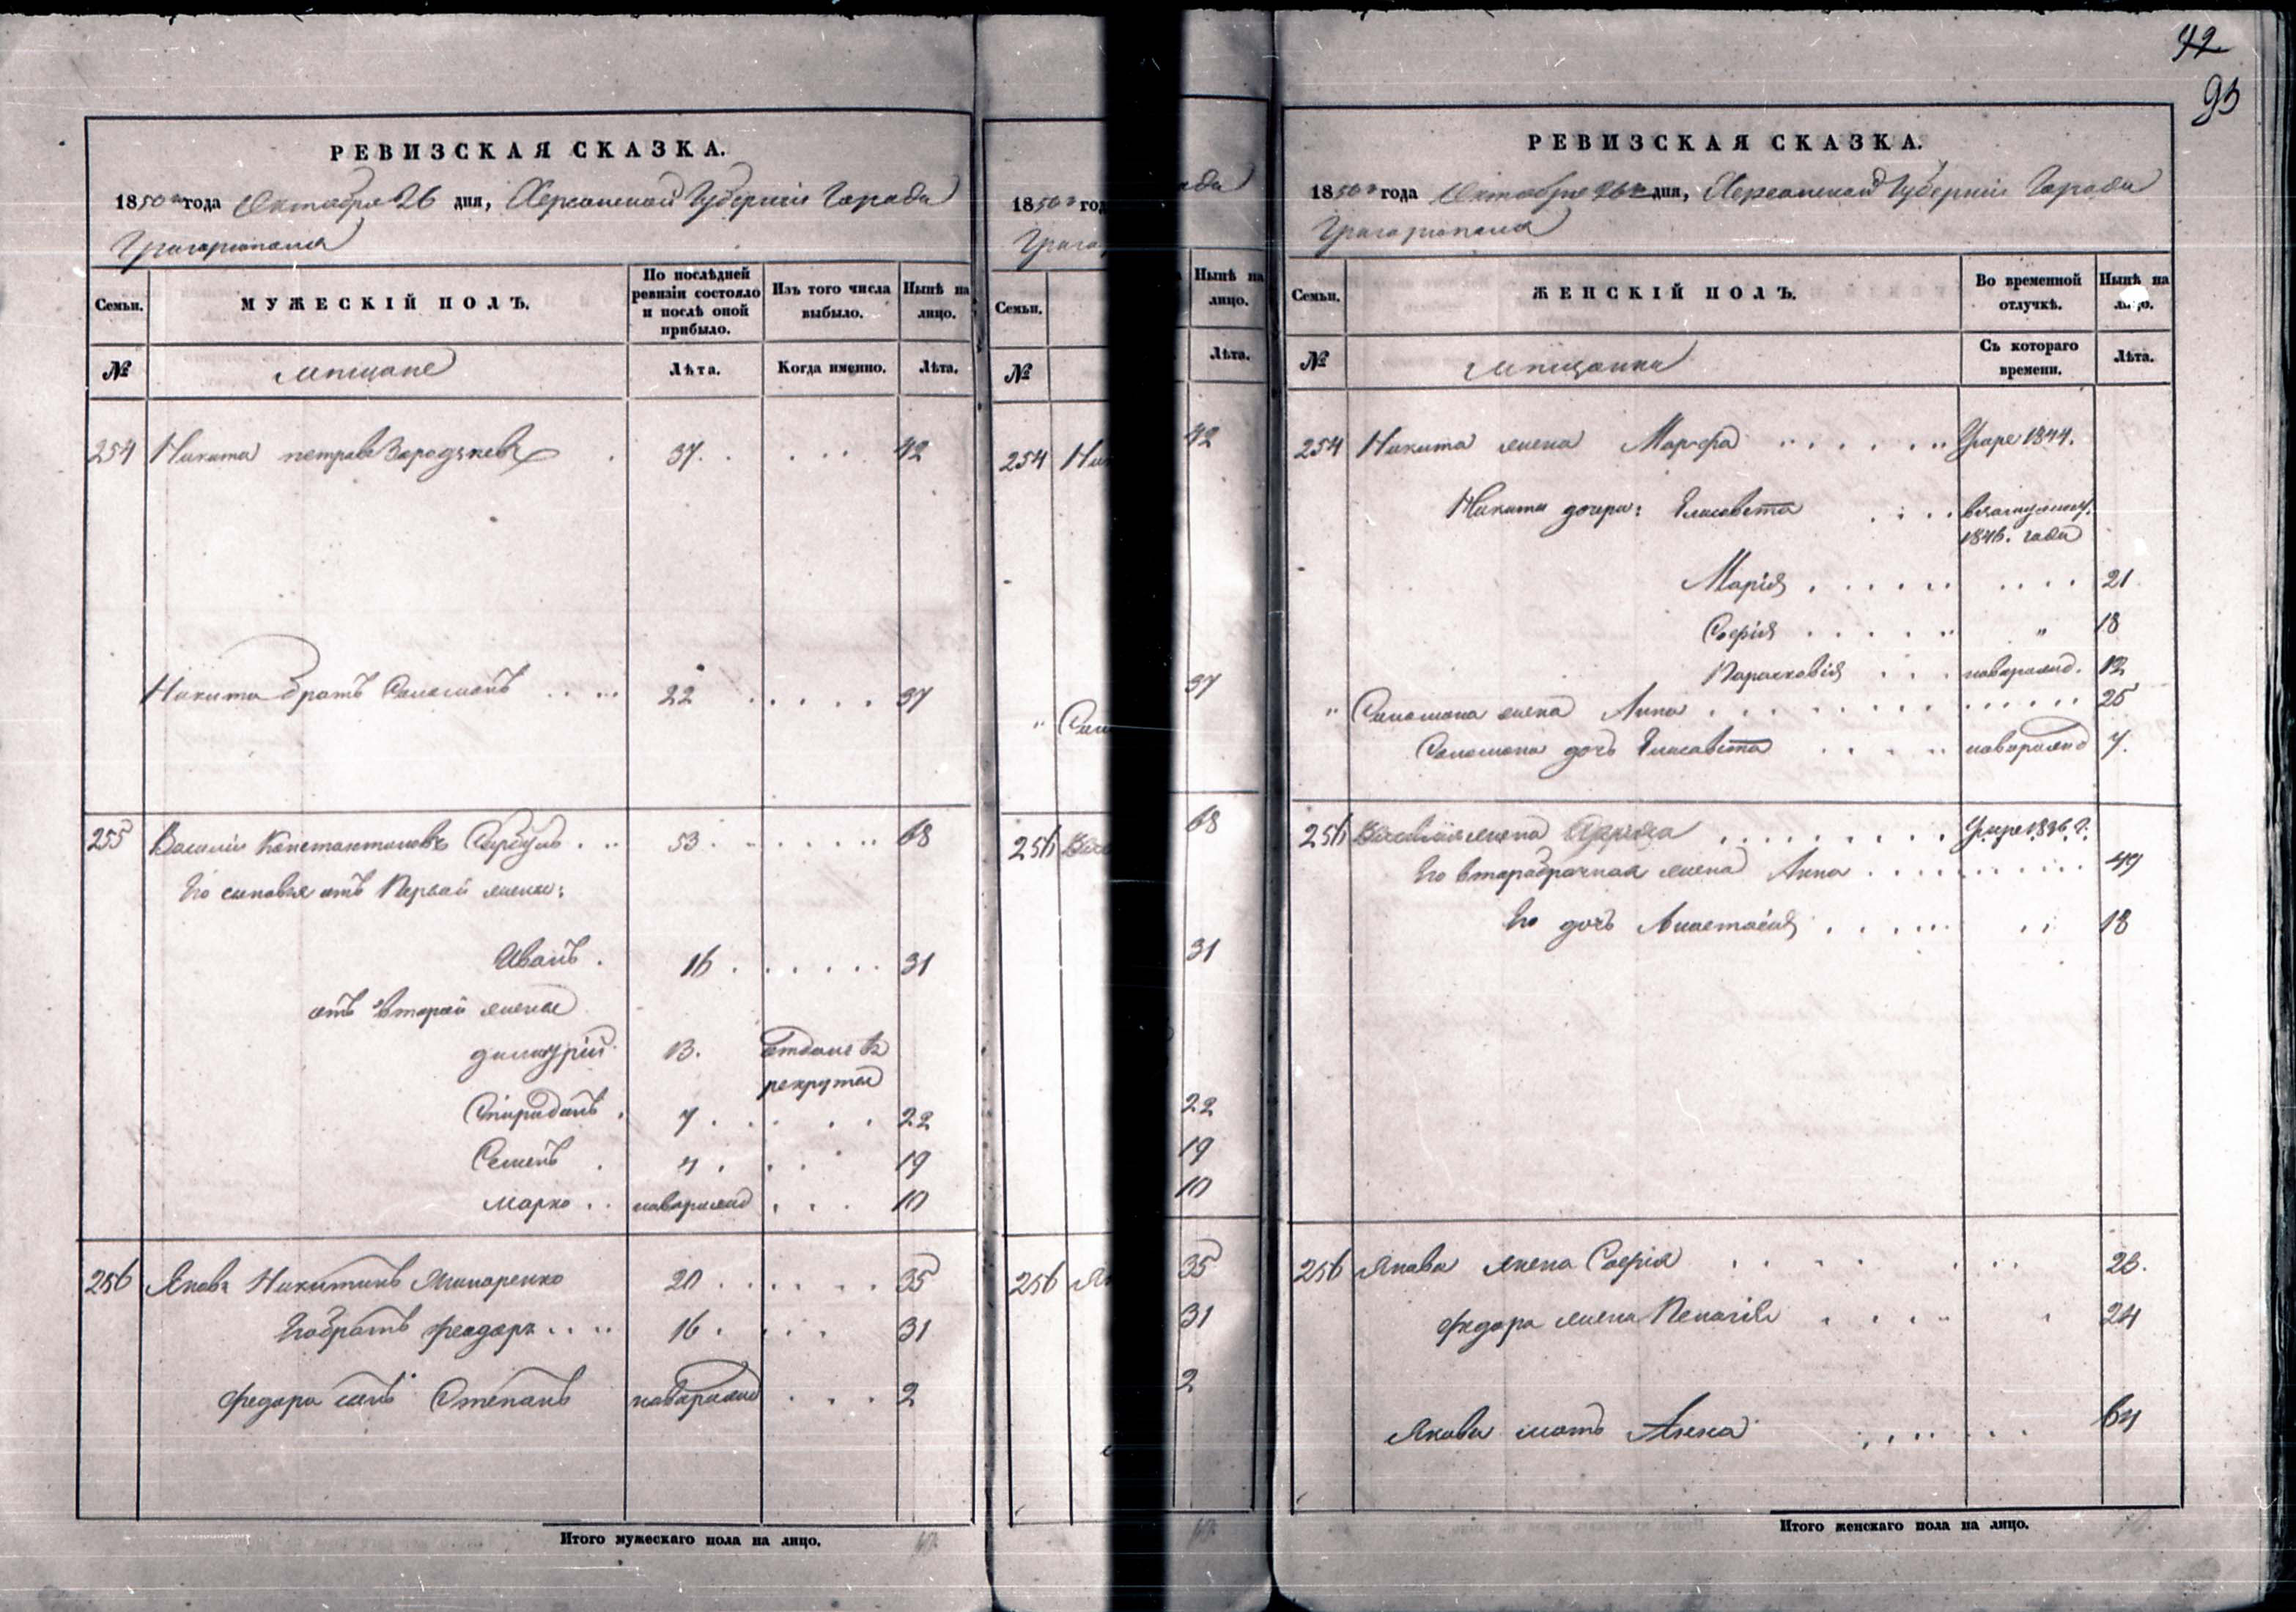 42
93
РЕВИЗСКАЯ СКАЗКА.
1850го года Октября 26 дня, Херсонской Губерніи Города
Григоріополя
Семьи. МУЖЕСКІЙ ПОЛЪ. По послѣдней ревизіи состояло и послѣ оной прибыло. Изъ того числа выбыло. Нынѣ на лицо.
№ мѣщане Лѣта. Когда именно. Лѣта.
254 Никита петровъ 37. 42
Никита братъ Соломонъ 22 37
255 Василій Константиновъ Сырбулъ 53 68
Его сыновья отъ Первой жены:
Иванъ 16 31
отъ Второй жены
димитрій 13. отданъ въ
рекруты
Спиридонъ 7 22
Семенъ 4 19
Марко новорожд 10
256 Яковъ Никитинъ 20 35
Его братъ Феодоръ 16 31
Федора сынъ Степанъ новорожд 2
Итого мужескаго пола на лицо.
1850го год
Семьи.
№
254 Ник
255
256 Як
ода
Нынѣ на лицо.
Лѣта.
42
37
68
31
22
19
10
35
31
2
РЕВИЗСКАЯ СКАЗКА.
1850го года Октября 26 дня, Херсонской Губерніи Города
Григоріополя
Семьи. ЖЕНСКІЙ ПОЛЪ. Во временной отлучкѣ. Нынѣ на лицо.
№ мѣщанки Съ котораго времени. Лѣта.
254 Никита жена Марфа Умре 1844.
Никиты дочери: Елисавета в замужест.
1846. года
Марія 21
Софія 18
Парасковія новорожд. 12
" Соломона жена Анна 25
Соломона дочь Елисавета новорожд 7.
255 Василія жена Умре 1836 г.
Его второбрачная жена Анна 49
Его дочь Анастасія 18
256 Якова жена Софія 23.
Федора жена Пелагія 24
Якова мать Анна 64
Итого женскаго пола на лицо.